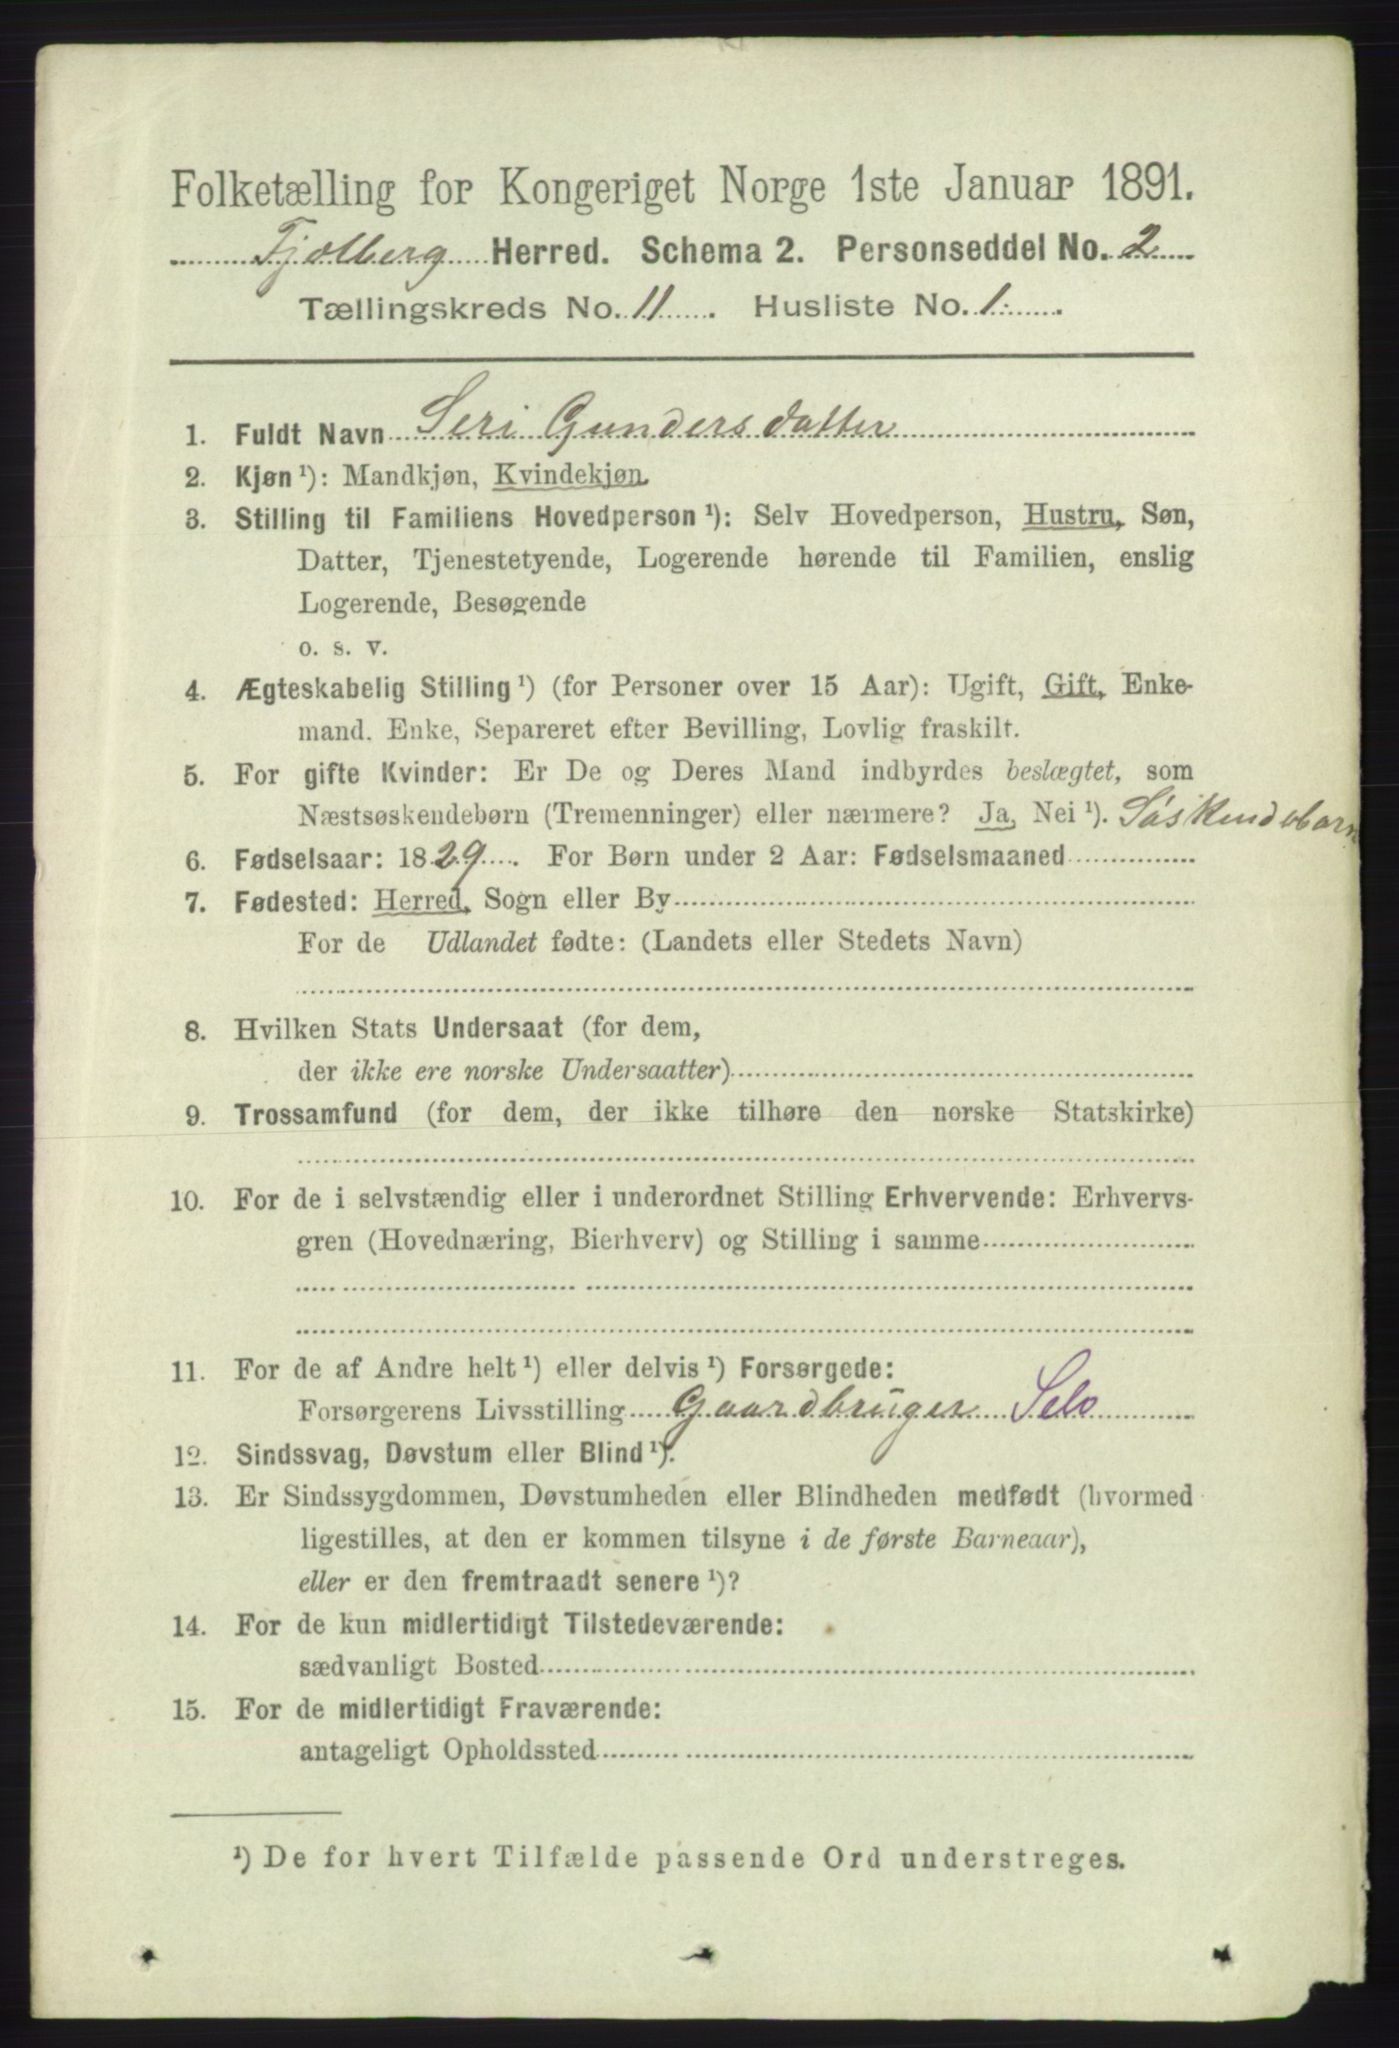 Folketælling for Kongeriget Norge 1ste Januar 1891.
Fjelberg Herred. Schema 2. Personseddel No. 2
Tællingskreds No. 11. Husliste No. 1.
1. Fuldt Navn Seri Gundersdatter
2. Kjøn ¹): Mandkjøn, Kvindekjøn.
3. Stilling til Familiens Hovedperson ¹): Selv Hovedperson, Hustru, Søn,
Datter, Tjenestetyende, Logerende hørende til Familien, enslig
Logerende, Besøgende
o. s. v.
4. Ægteskabelig Stilling ¹) (for Personer over 15 Aar): Ugift, Gift, Enke-
mand. Enke, Separeret efter Bevilling, Lovlig fraskilt.
5. For gifte Kvinder: Er De og Deres Mand indbyrdes beslægtet, som
Næstsøskendebørn (Tremenninger) eller nærmere? Ja, Nei ¹). Søskendebørn
6. Fødselsaar: 1829. For Børn under 2 Aar: Fødselsmaaned
7. Fødested: Herred, Sogn eller By
For de Udlandet fødte: (Landets eller Stedets Navn)
8. Hvilken Stats Undersaat (for dem,
der ikke ere norske Undersaatter)
9. Trossamfund (for dem, der ikke tilhøre den norske Statskirke)
10. For de i selvstændig eller i underordnet Stilling Erhvervende: Erhvervs-
gren (Hovednæring, Bierhverv) og Stilling i samme
11. For de af Andre helt ¹) eller delvis ¹) Forsørgede:
Forsørgerens Livsstilling Gaardbruger Selo
12. Sindssvag, Døvstum eller Blind ¹).
13. Er Sindssygdommen, Døvstumheden eller Blindheden medfødt (hvormed
ligestilles, at den er kommen tilsyne i de første Barneaar),
eller er den fremtraadt senere ¹)?
14. For de kun midlertidigt Tilstedeværende:
sædvanligt Bosted
15. For de midlertidigt Fraværende:
antageligt Opholdssted
¹) De for hvert Tilfælde passende Ord understreges.